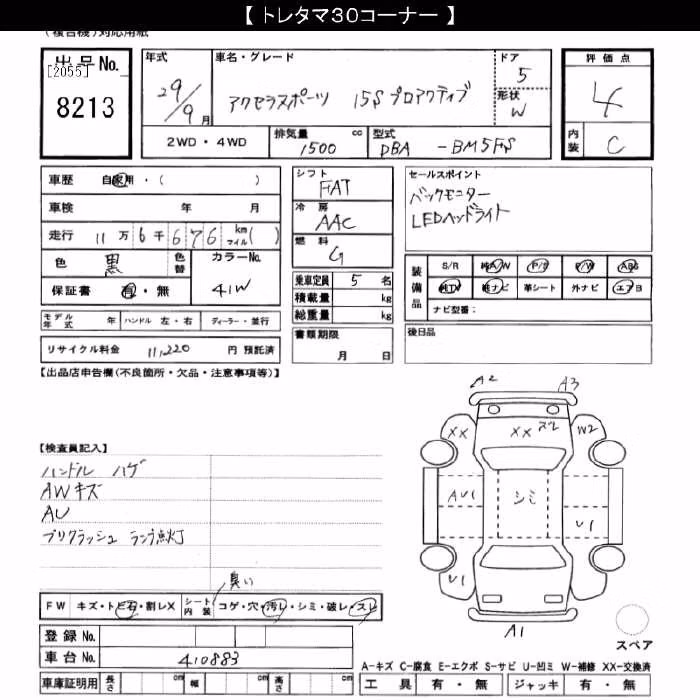 【 トレタマ30コーナー 】
(複合機)対応用紙
出品No.
[2055]
8213
年式
29/9月
車名・グレード
アクセラスポーツ 15S プロアクティブ
ドア
5
形状
W
評価点
4
内装 C
2WD・4WD
排気量 cc
1500
型式
DBA -BM5FS
車歴 自家用・( )
車検 年 月
走行 11万6千676 km マイル( )
色 黒 色替
カラーNo.
41W
保証書 有・無
モデル年式 年 ハンドル 左・右 ディーラー・並行
リサイクル料金 11,220 円 預託済
シフト
FAT
冷房
AAC
燃料
G
乗車定員 5 名
積載量 kg
総重量 kg
書類期限
月 日
セールスポイント
バックモニター
LEDヘッドライト
装備品
S/R 純A/W P/S P/W ABS
純TV 純ナビ 革シート 外ナビ エアB
ナビ型番:
後日品
【出品店申告欄(不良箇所・欠品・注意事項等)】
【検査員記入】
ハンドル ハゲ
AWキズ
AU
プリクラッシュ ランプ点灯
臭い
FW キズ・トビ石・割レX シート内装 コゲ・穴・汚レ・シミ・破レ・スレ
登録No.
車台No. 410883
車庫証明用 長さ cm 幅 cm 高さ cm
A2 A3
XX XX スレ W2
AU1 シミ U1
U1
A1
スペア
A-キズ C-腐食 E-エクボ S-サビ U-凹ミ W-補修 XX-交換済
工具 有・無 ジャッキ 有・無